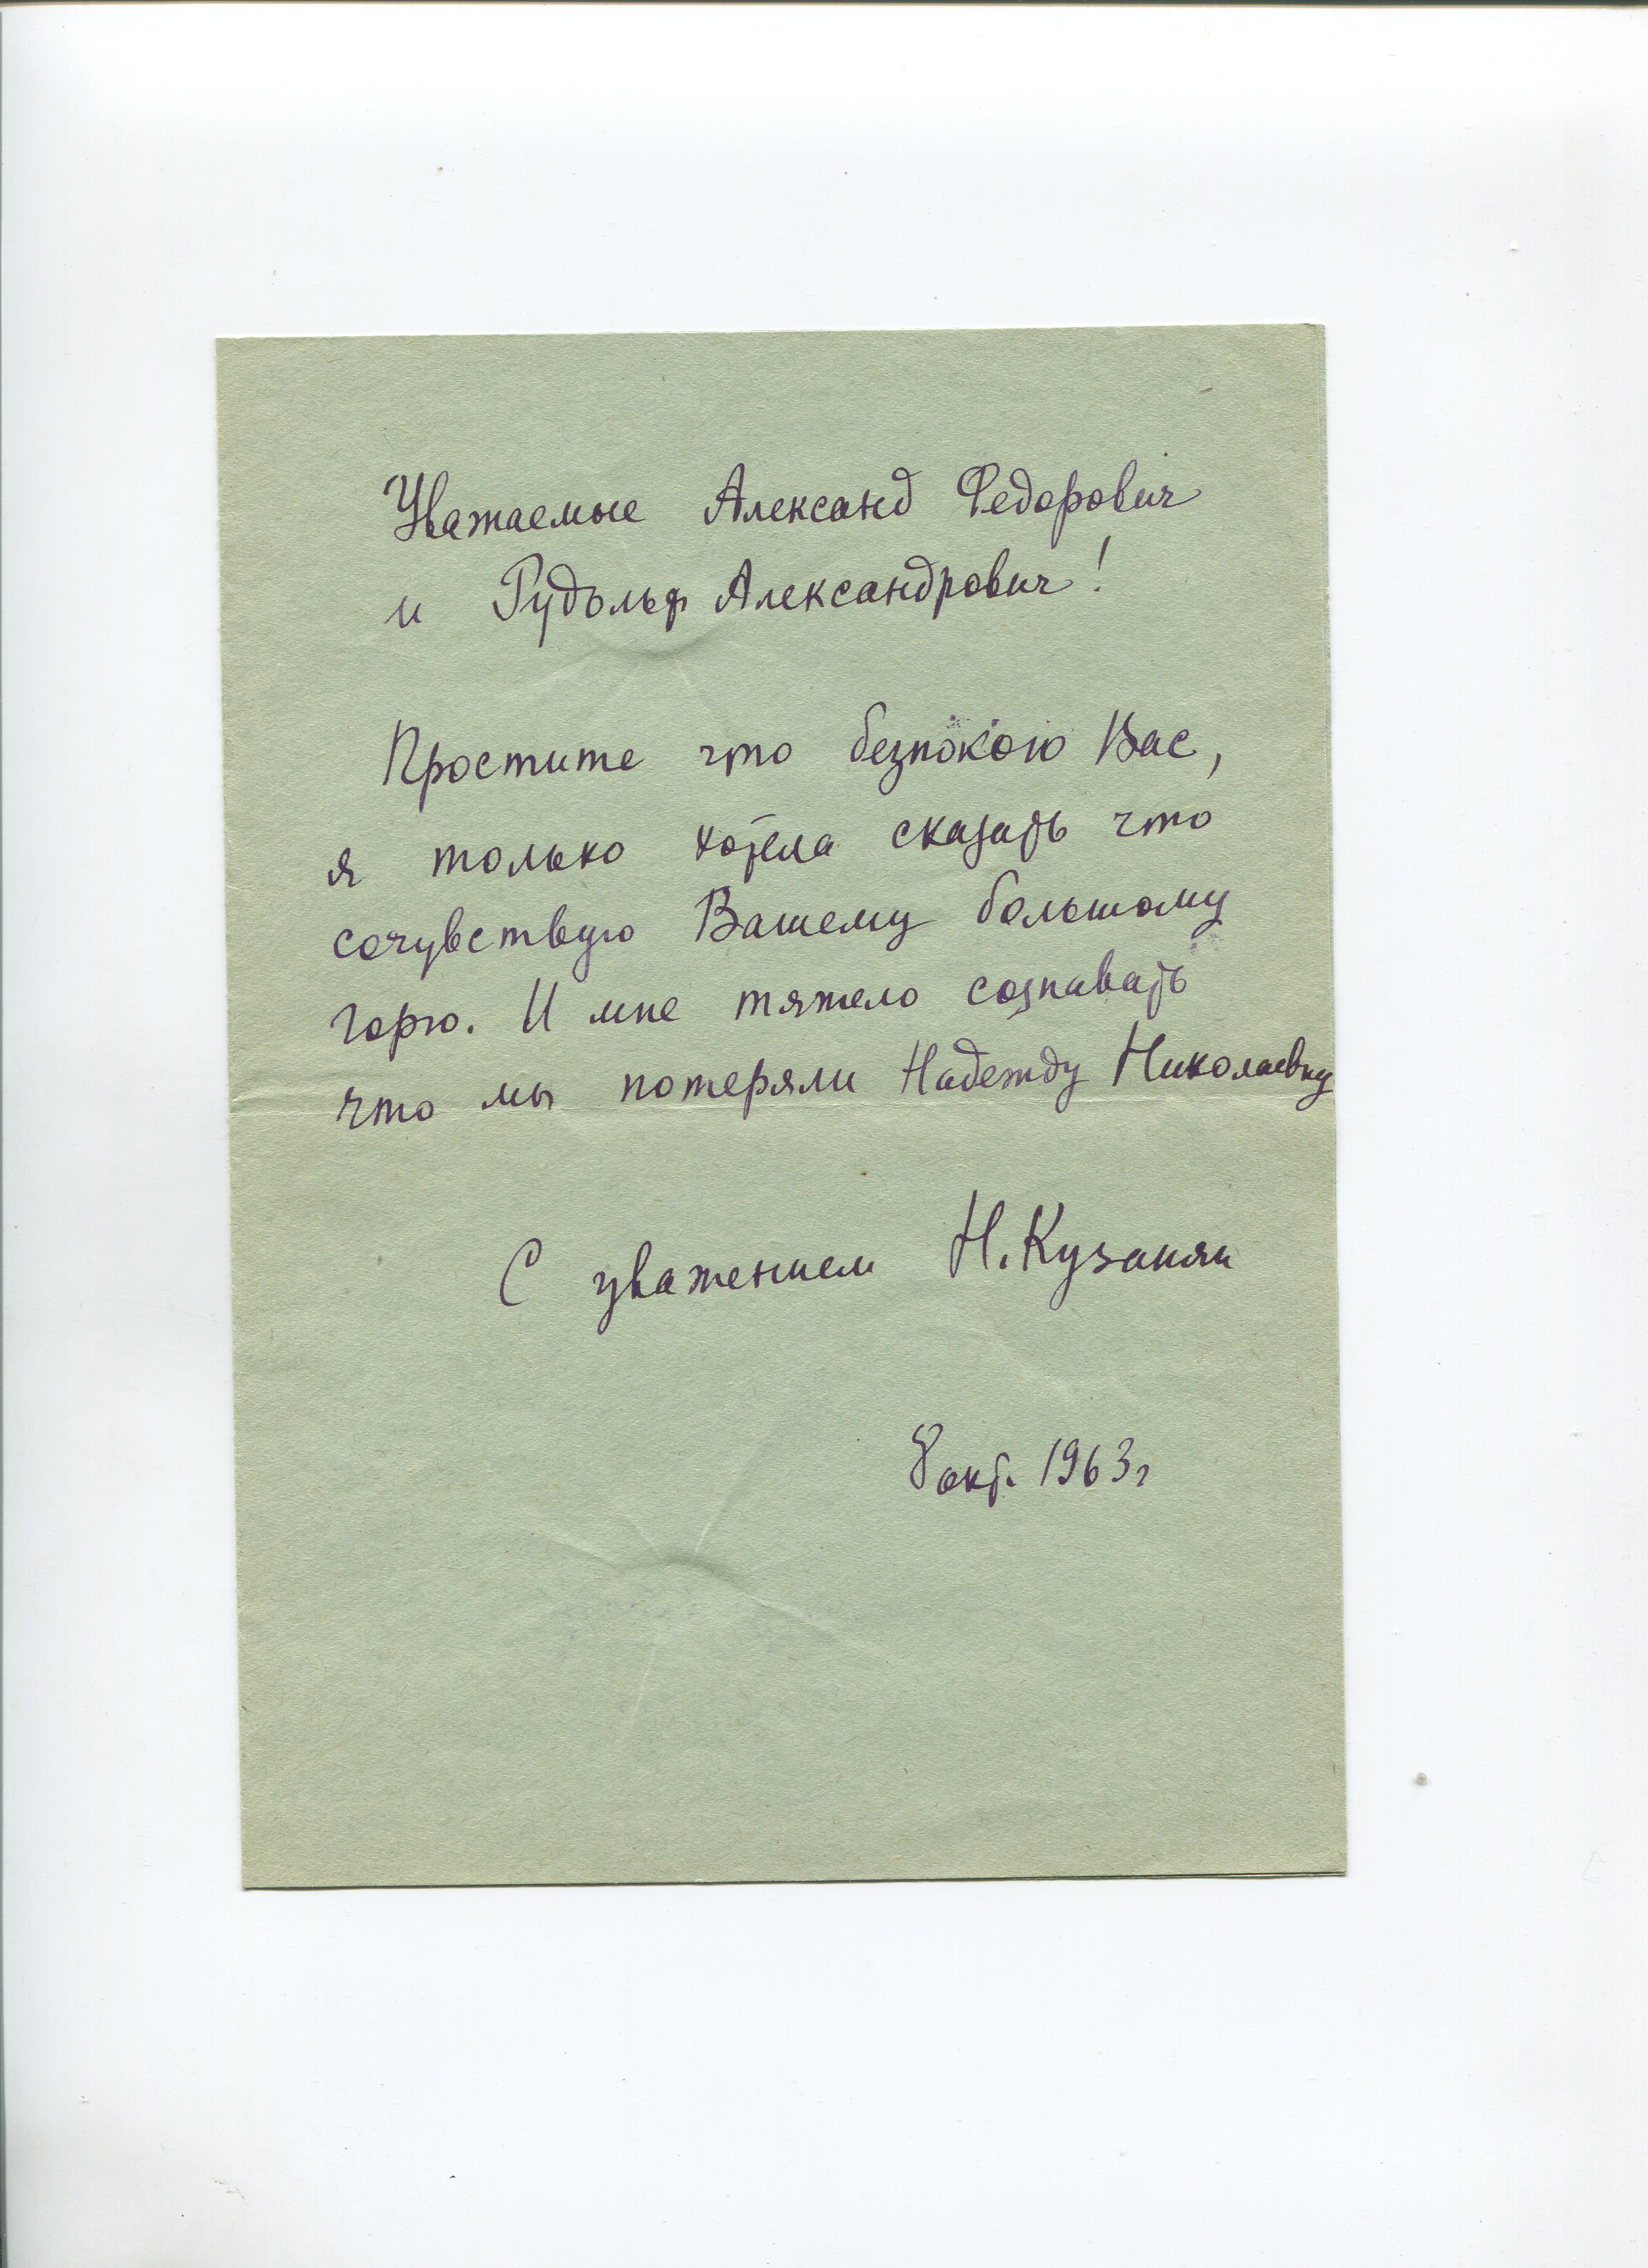 Уважаемые Александ Федорович
и Рудольф Александрович!
Простите что безпокою Вас,
я только хотела сказать что
сочувствую Вашему большому
горю. И мне тяжело сознавать
что мы потеряли Надежду Николаевну
С уважением Н. Кузанян
8 окт. 1963 г